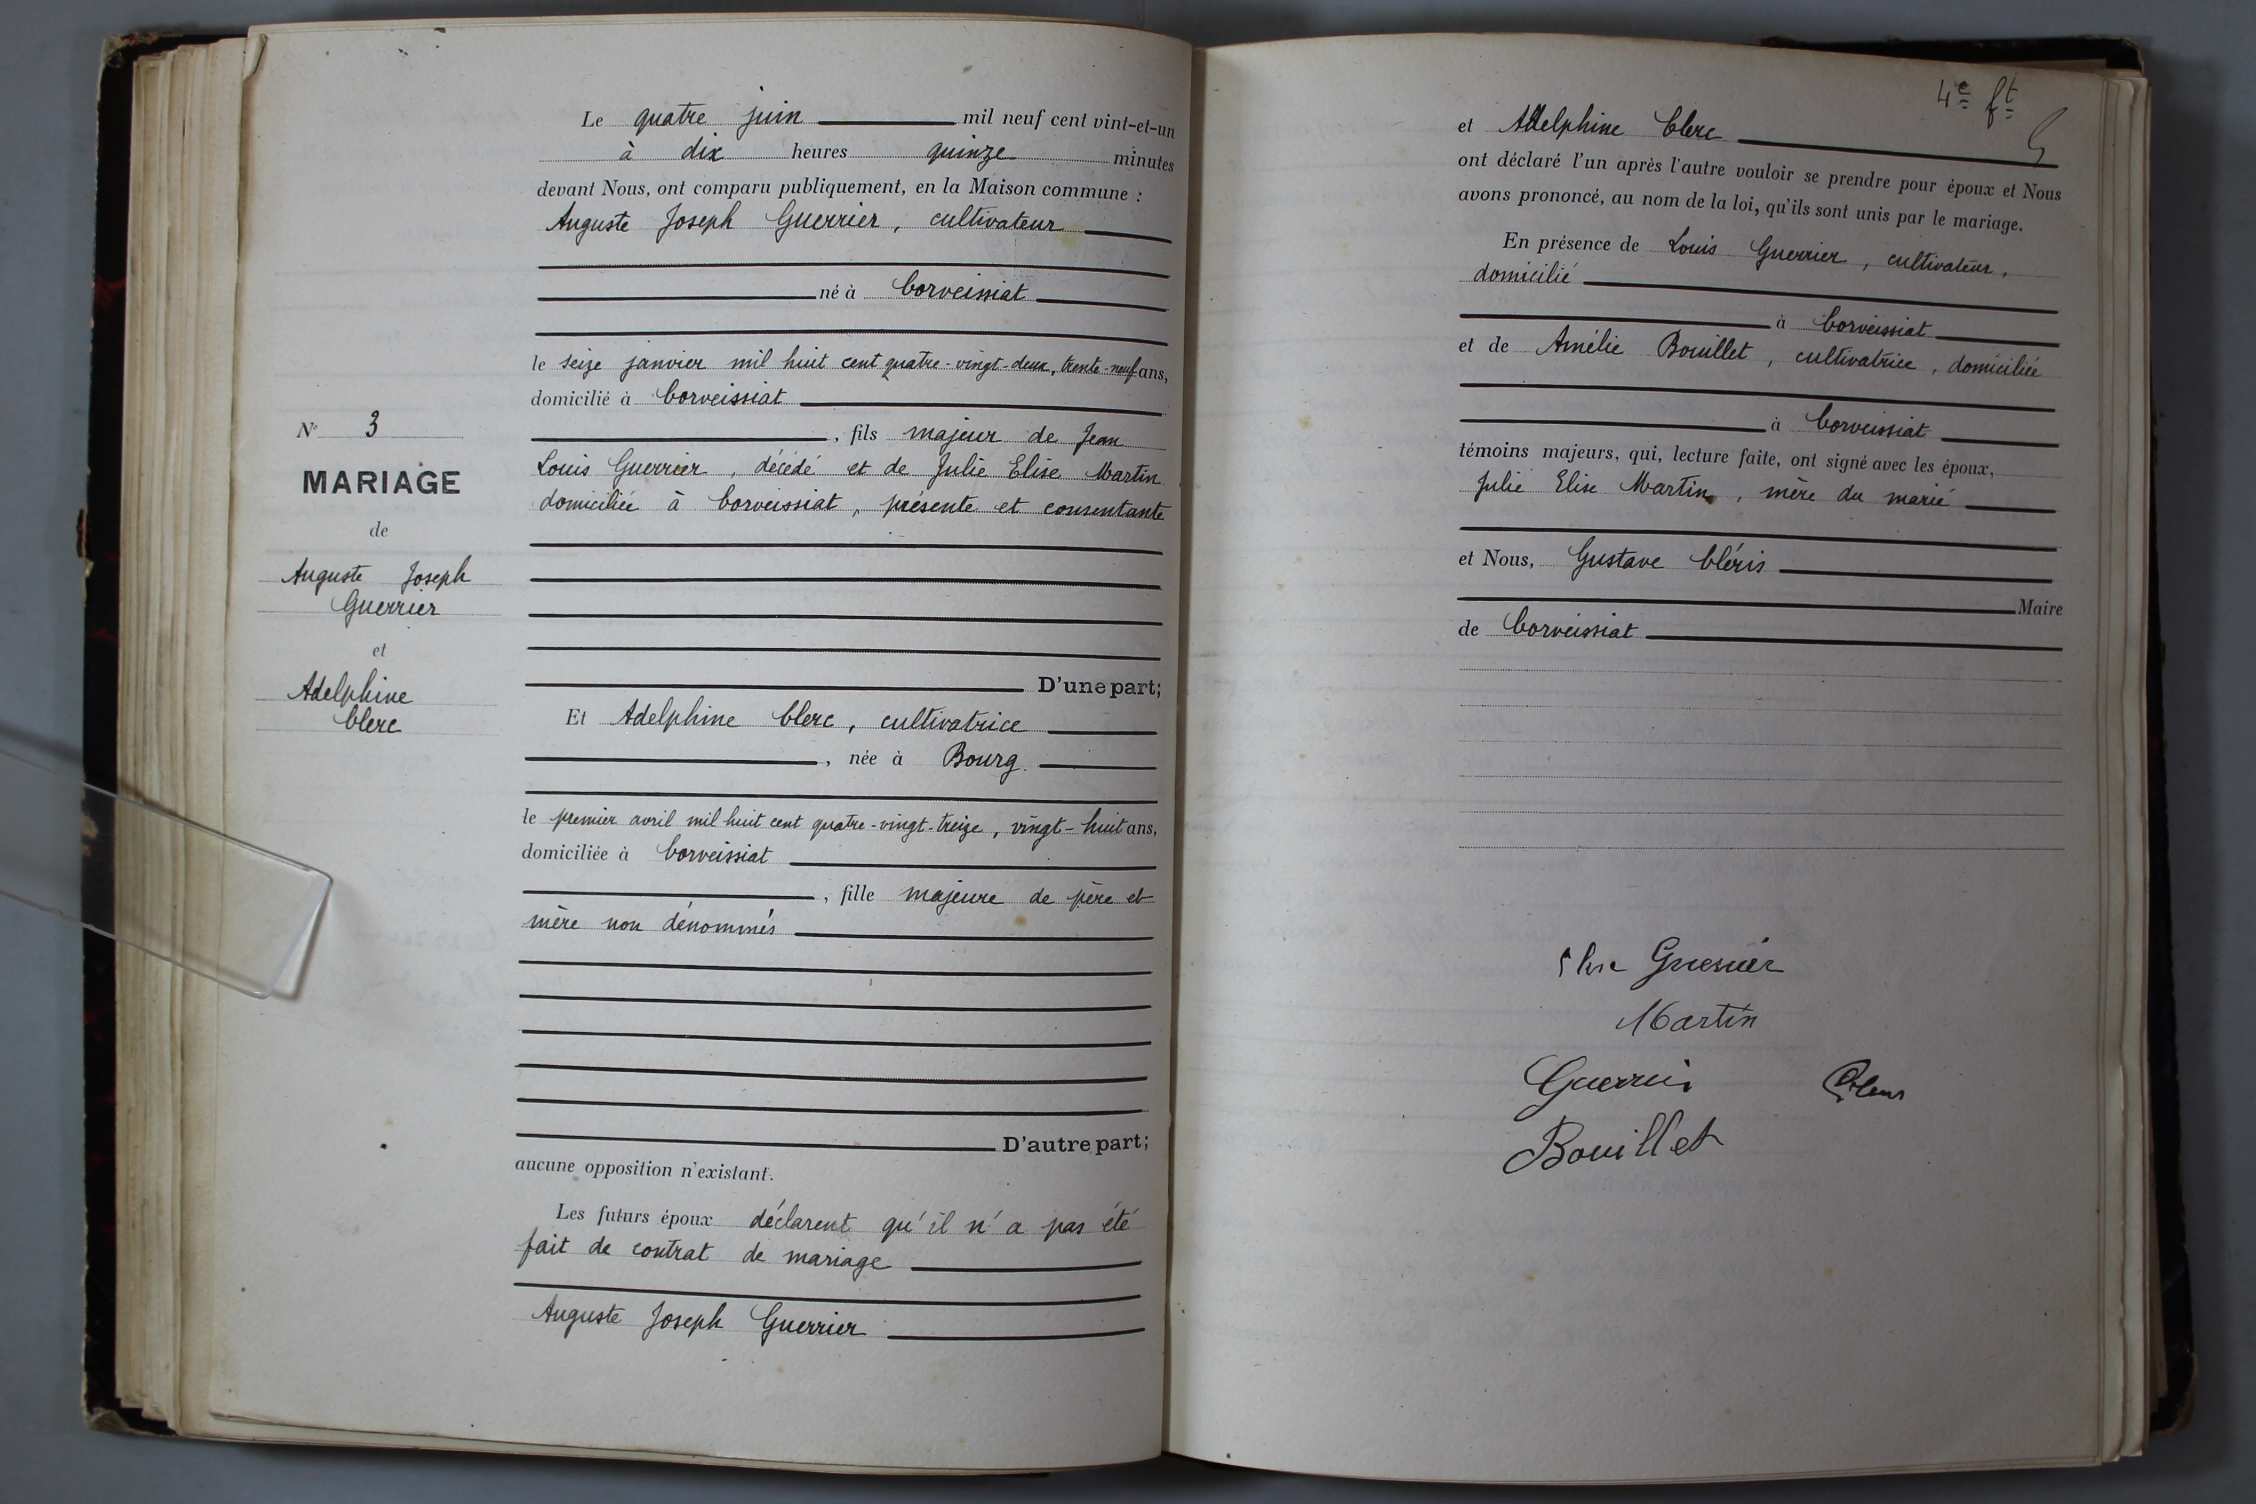 Le quatre juin mil neuf cent vint-et-un
à dix heures quinze minutes
devant Nous, ont comparu publiquement, en la Maison commune :
Auguste Joseph Guerrier, cultivateur
né à Corveissiat
le seize janvier mil huit cent quatre-vingt-deux, trente-neuf ans,
domicilié à Corveissiat
, fils majeur de Jean
Louis Guerrier, décédé et de Julie Elise Martin
domiciliée à Corveissiat, présente et consentante
D'une part;
Et Adelphine Clerc, cultivatrice
, née à Bourg
le premier avril mil huit cent quatre-vingt-treize, vingt-huit ans,
domiciliée à Corveissiat
, fille majeure de père et
mère non dénommés
D'autre part;
aucune opposition n'existant.
Les futurs époux déclarent qu'il n'a pas été
fait de contrat de mariage
Auguste Joseph Guerrier
N° 3
MARIAGE
de
Auguste Joseph
Guerrier
et
Adelphine
Clerc
4e ft
et Adelphine Clerc
ont déclaré l'un après l'autre vouloir se prendre pour époux et Nous
avons prononcé, au nom de la loi, qu'ils sont unis par le mariage.
En présence de Louis Guerrier, cultivateur,
domicilié
à Corveissiat
et de Amélie Bouillet, cultivatrice, domiciliée
à Corveissiat
témoins majeurs, qui, lecture faite, ont signé avec les époux,
Julie Elise Martin, mère du marié
et Nous, Gustave Cléris
Maire
de Corveissiat
Guerrier
Martin
Guerrier
Bouillet